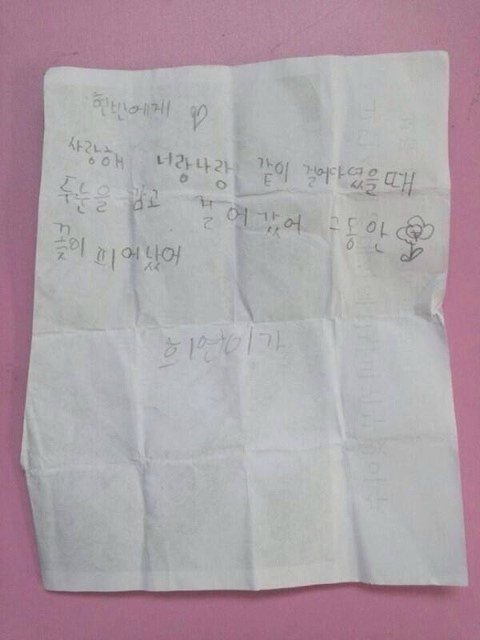 현빈에게
사랑해 너랑나랑 같이 걸어다녔을때
두눈을 감고 그동안
꽃이 피어났어
희연이가